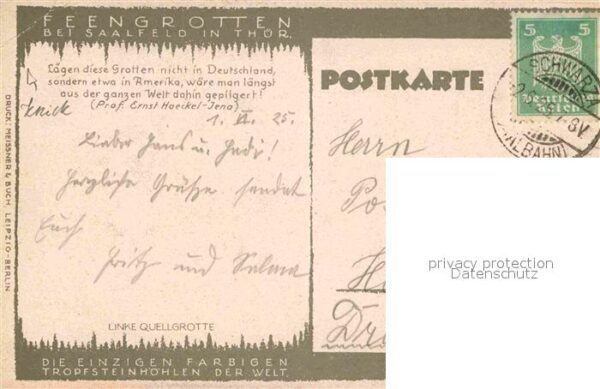 FEENGROTTEN
BEI SAALFELD IN THÜR.
Lägen diese Grotten nicht in Deutschland,
sondern etwa in Amerika, wäre man längst
aus der ganzen Welt dahin gepilgert!
(Prof. Ernst Haeckel-Jena)
Knick
1. VI. 25.
Lieber Hans u. Hedi!
Herzliche Grüße sendet
Euch
Fritz und Selma
LINKE QUELLGROTTE
DIE EINZIGEN FARBIGEN
TROPFSTEINHÖHLEN DER WELT.
DRUCK: MEISSNER & BUCH, LEIPZIG-BERLIN
POSTKARTE
5 5
Deutsches
Reich
SCHWARZA
(SAALBAHN)
Herrn
privacy protection
Datenschutz